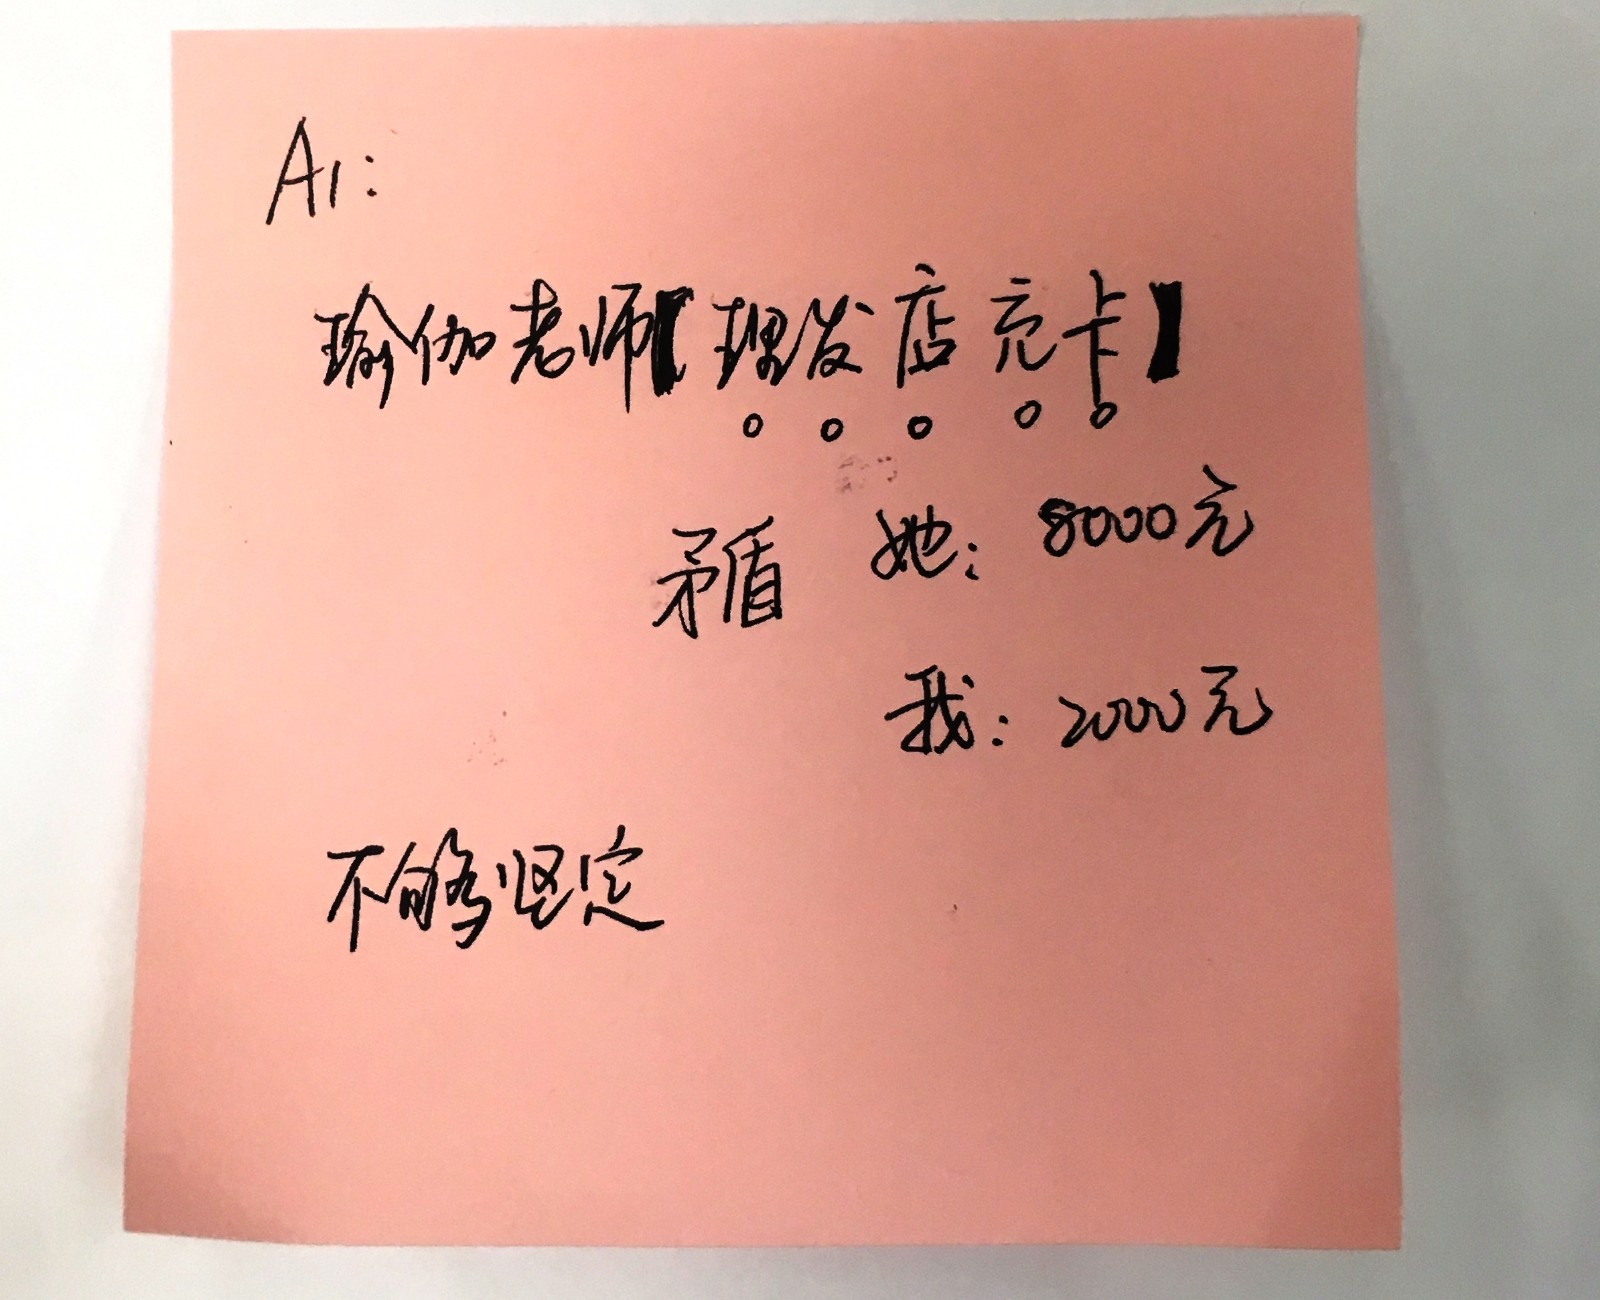 A1:
瑜伽老师【理发店充卡】
矛盾 她: 8000元
我: 2000元
不够坚定